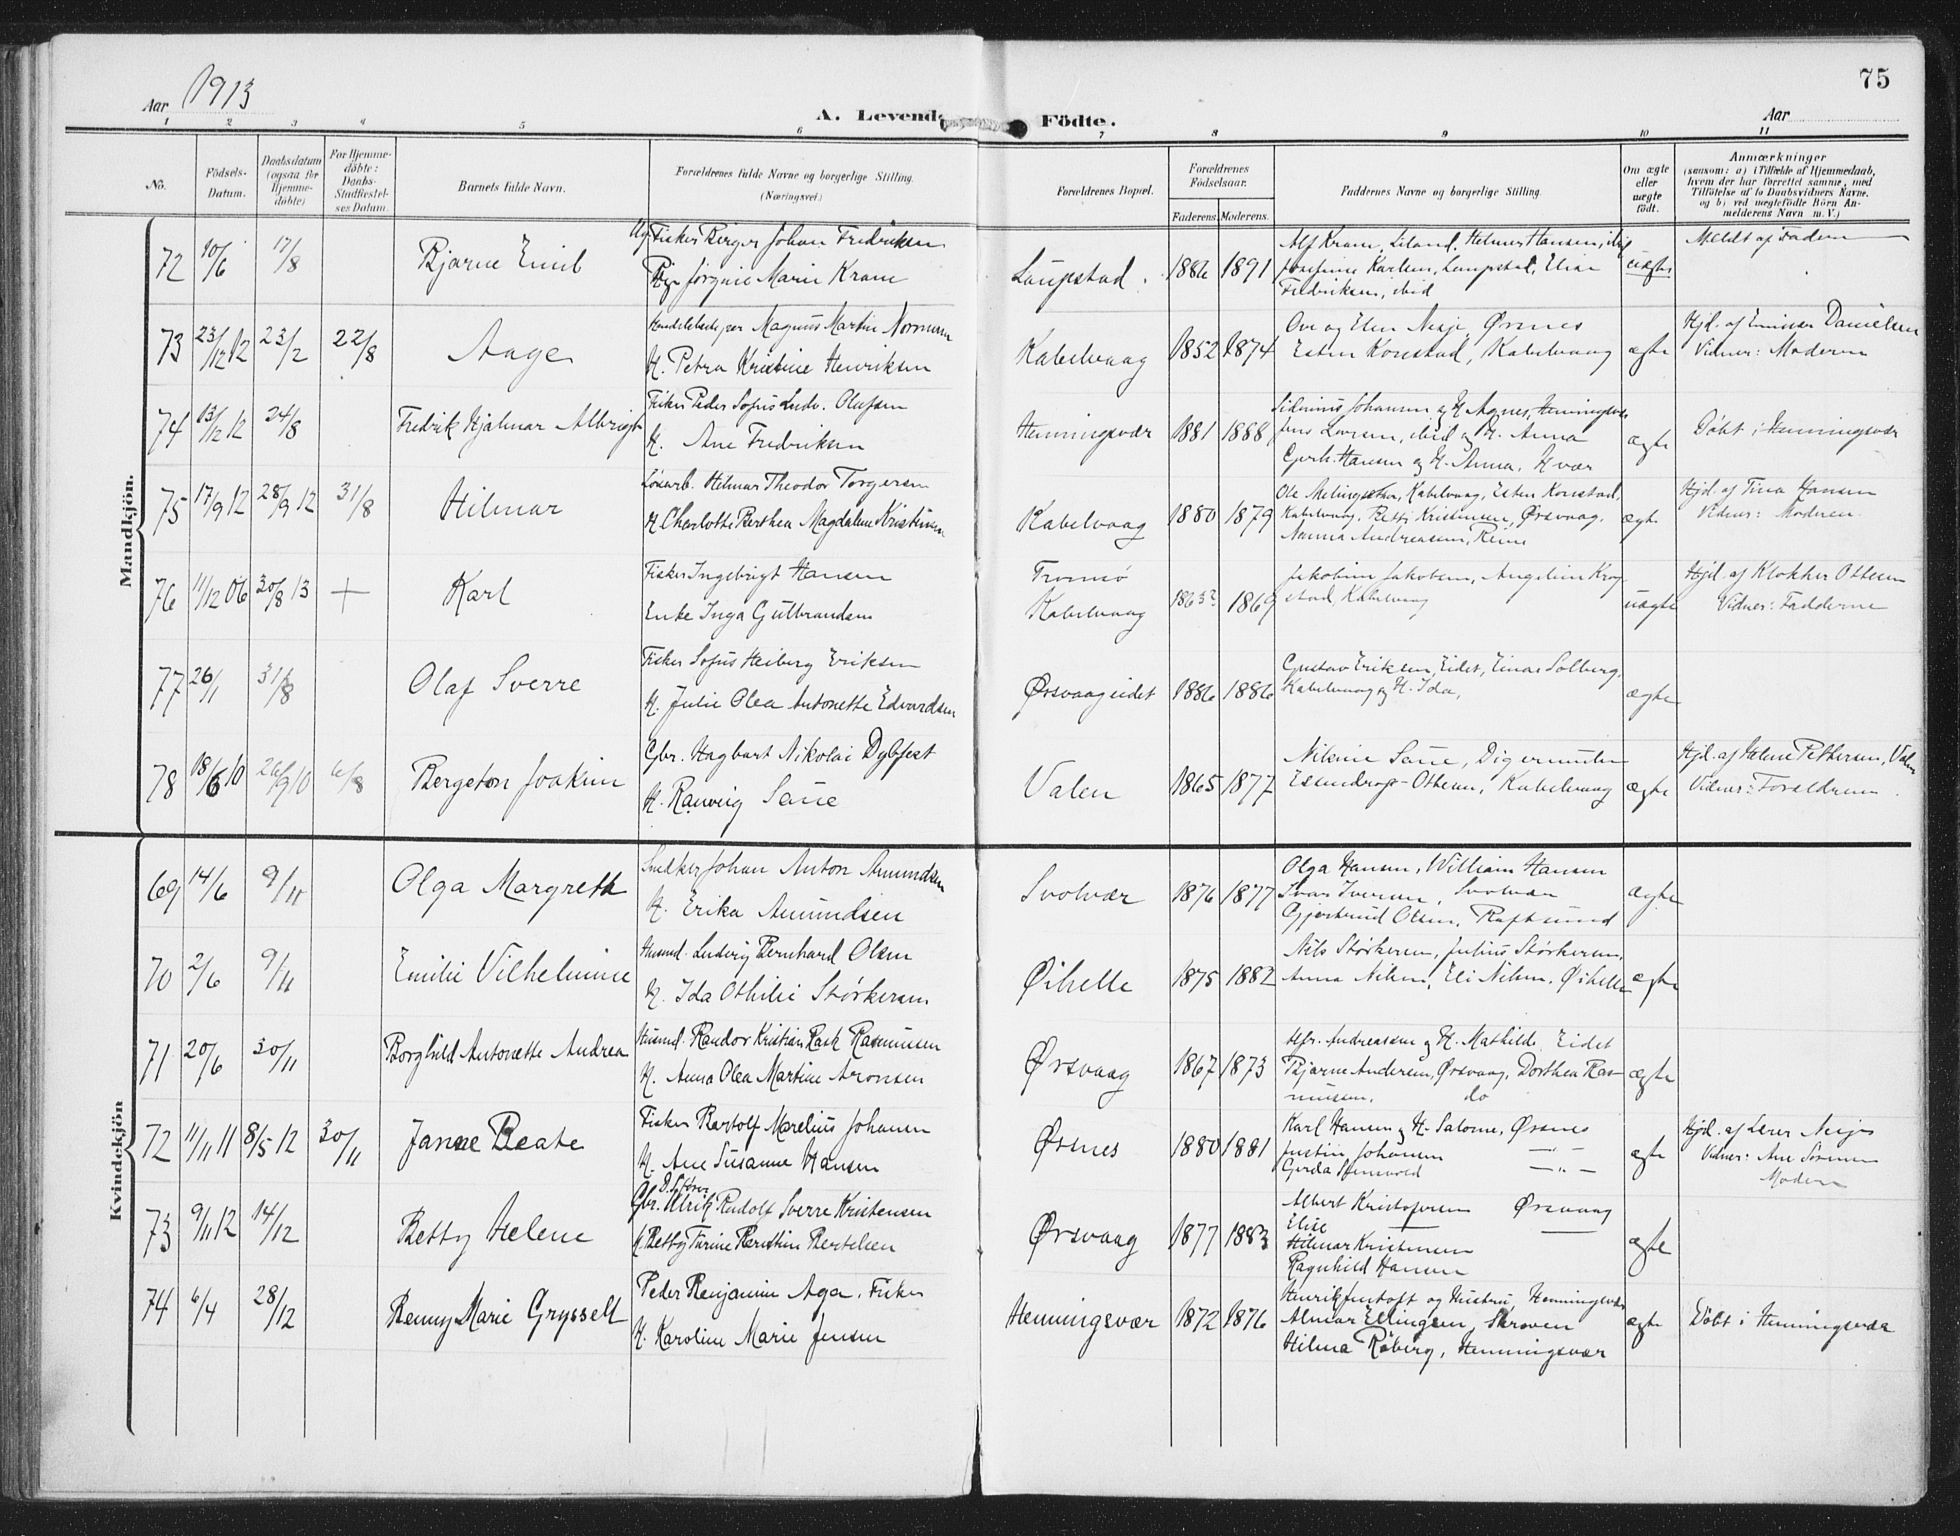 75
Aar 1913
A. Levend Födte.
Aar
1 2 3 4 5 6 7 8 9 10 11
No.
Födsels-Datum.
Daabsdatum (ogsaa for Hjemmedöbte)
For Hjemmedöbte: Daabs-Stadfæstelses Datum.
Barnets fulde Navn.
Forældrenes fulde Navne og borgerlige Stilling.
(Næringsvei.)
Forældrenes Bopæl.
Forældrenes Födselsaar.
Faderens. Moderens.
Faddernes Navne og borgerlige Stilling.
Om ægte eller uægte födt.
Anmærkninger
(saasom: a) i Tilfælde af Hjemmedaab, hvem der har forrettet samme, med Tilföielse af to Daabsvidners Navne, og b) ved uægtefödte Börn Anmelderens Navn m. V.)
Mandkjön.
72 10/6 17/8 Bjarne Emil
Ug. Fisker Berger Johan Fredriksen
Pige Jørgine Marie Krane
Laupstad. 1886 1891
Alf Krane, Liland, Helmer Hansen, ibid
Josefine Karlsen, Laupstad, Elise
Fredriksen, ibid
uægte
Meldt af Faderen
73 23/12 12 23/2 22/8 Aage
Magnus Martin Normann
H. Petra Kristine Henriksen
Kabelvaag 1852 1874
Ove og Elen Nesje, Ørsnes
Esten Konstad, Kabelvaag
ægte
Hjd. af Emissær Danielsen
Vidner: Moderen
74 13/12 12 24/8 Fredrik Hjalmar Albrigt
Fisker Peder Sofus Ludv. Olufsen
H. Ane Fredriksen
Henningsvær 1881 1888
Johansen og H. Agnes, Henningsvær
Jens Larsen, ibid og H. Anna
Gerh. Hansen og H. Anna, Hvær
ægte
Døbt i Henningsvær
75 17/9 12 28/9 12 31/8 Hilmar
Løsarb. Helmar Theodor Torgersen
H. Charlotte Berthea Magdalene Kristensen
Kabelvaag 1880 1879
Ole Melingsæther, Kabelvaag, Esten Konstad,
Kabelvaag, Betti Kristensen, Ørsvaag,
Nanna Andreasen, Reine
ægte
Hjd. af Tina Hansen
Vidner: Moderen.
76 11/12 06 30/8 13 + Karl
Fisker Ingebrigt Hansen
Enke Inga Gulbrandsen
Tromsø
Kabelvaag
1863? 1869
Jakobine Jakobsen, Angeline Krog-
stad, Kabelvaag
uægte
Hjd. af Klokker Ottesen
Vidner: Fadderne
77 26/1 31/8 Olaf Sverre
Fisker Sofus Heiberg Eriksen
H. Julie Olea Antonette Edvardsen
Ørsvaageidet 1886 1886
Gustav Eriksen, Eidet, Einar Solberg,
Kabelvaag og H. Ida,
ægte
78 18/6 10 26/9 10 6/8 Bergeton Joakim
Gbr. Hagbart Nikolai Dybfest
H. Ranveig Sane
Valen 1865 1877
Nilsine Sane, Digermulen
Esendrop-Othesen, Kabelvaag
ægte
Hjd. af Helene Pettersen, Valen
Vidner: Forældrene.
Kvindekjön
69 14/6 9/11 Olga Margreth
Snekker Johan Anton Amundsen
H. Erika Amundsen
Svolvær 1876 1877
Olga Hansen, William Hansen
Ivar Iversen, Svolvær
Gjertrud Olsen, Raftsund
ægte
70 2/6 9/11 Emilie Vilhelmine
Husmd. Ludvig Bernhard Olsen
H. Ida Othilie Størkersen
Øihelle 1875 1882
Nils Størkersen, Julius Størkersen,
Anna Nilsen, Eli Nilsen, Øihelle
ægte
71 20/6 30/11 Borghild Antonette Andrea
Husmd. Randor Kristian Rask Rasmussen
H. Anna Olea Martine Aronsen
Ørsvaag 1867 1873
Andreassen og H. Mathilde, Eidet
Bjarne Andersen, Ørsvaag, Dorthea Ras-
mussen, do
ægte
72 11/11 11 8/5 12 30/11 Janne Beate
Fisker Bertolf Morelius Johansen
H. Ane Susanne Hansen
Ørsnes 1880 1881
Karl Hansen og H. Salome, Ørsnes
Justin Johansen — " —
Gerda — " —
ægte
Hjd. af Lærer Nesje
Vidner: Ane Sørensen
Moderen
73 9/11 12 14/12 Betty Helene
Gbr. Ulrik Rudolf Sverre Kristensen
H. Betty Turine Berntine Bertelsen
Ørsvaag 1877 1883
Albert Kristofersen Ørsvaag
Elise —
Hilmar Kristensen
Ragnhild Hansen
ægte
74 6/4 28/12 Benny Marie Gryssell
Peder Benjamin Aga. Fisker
H. Karoline Marie Jensen
Henningsvær 1872 1876
Henrik Jentoft og Hustru, Henningsvær
Almar Ellingsen, Skroven
Hilma Røberg, Henningsvær
ægte
Døbt i Henningsvær